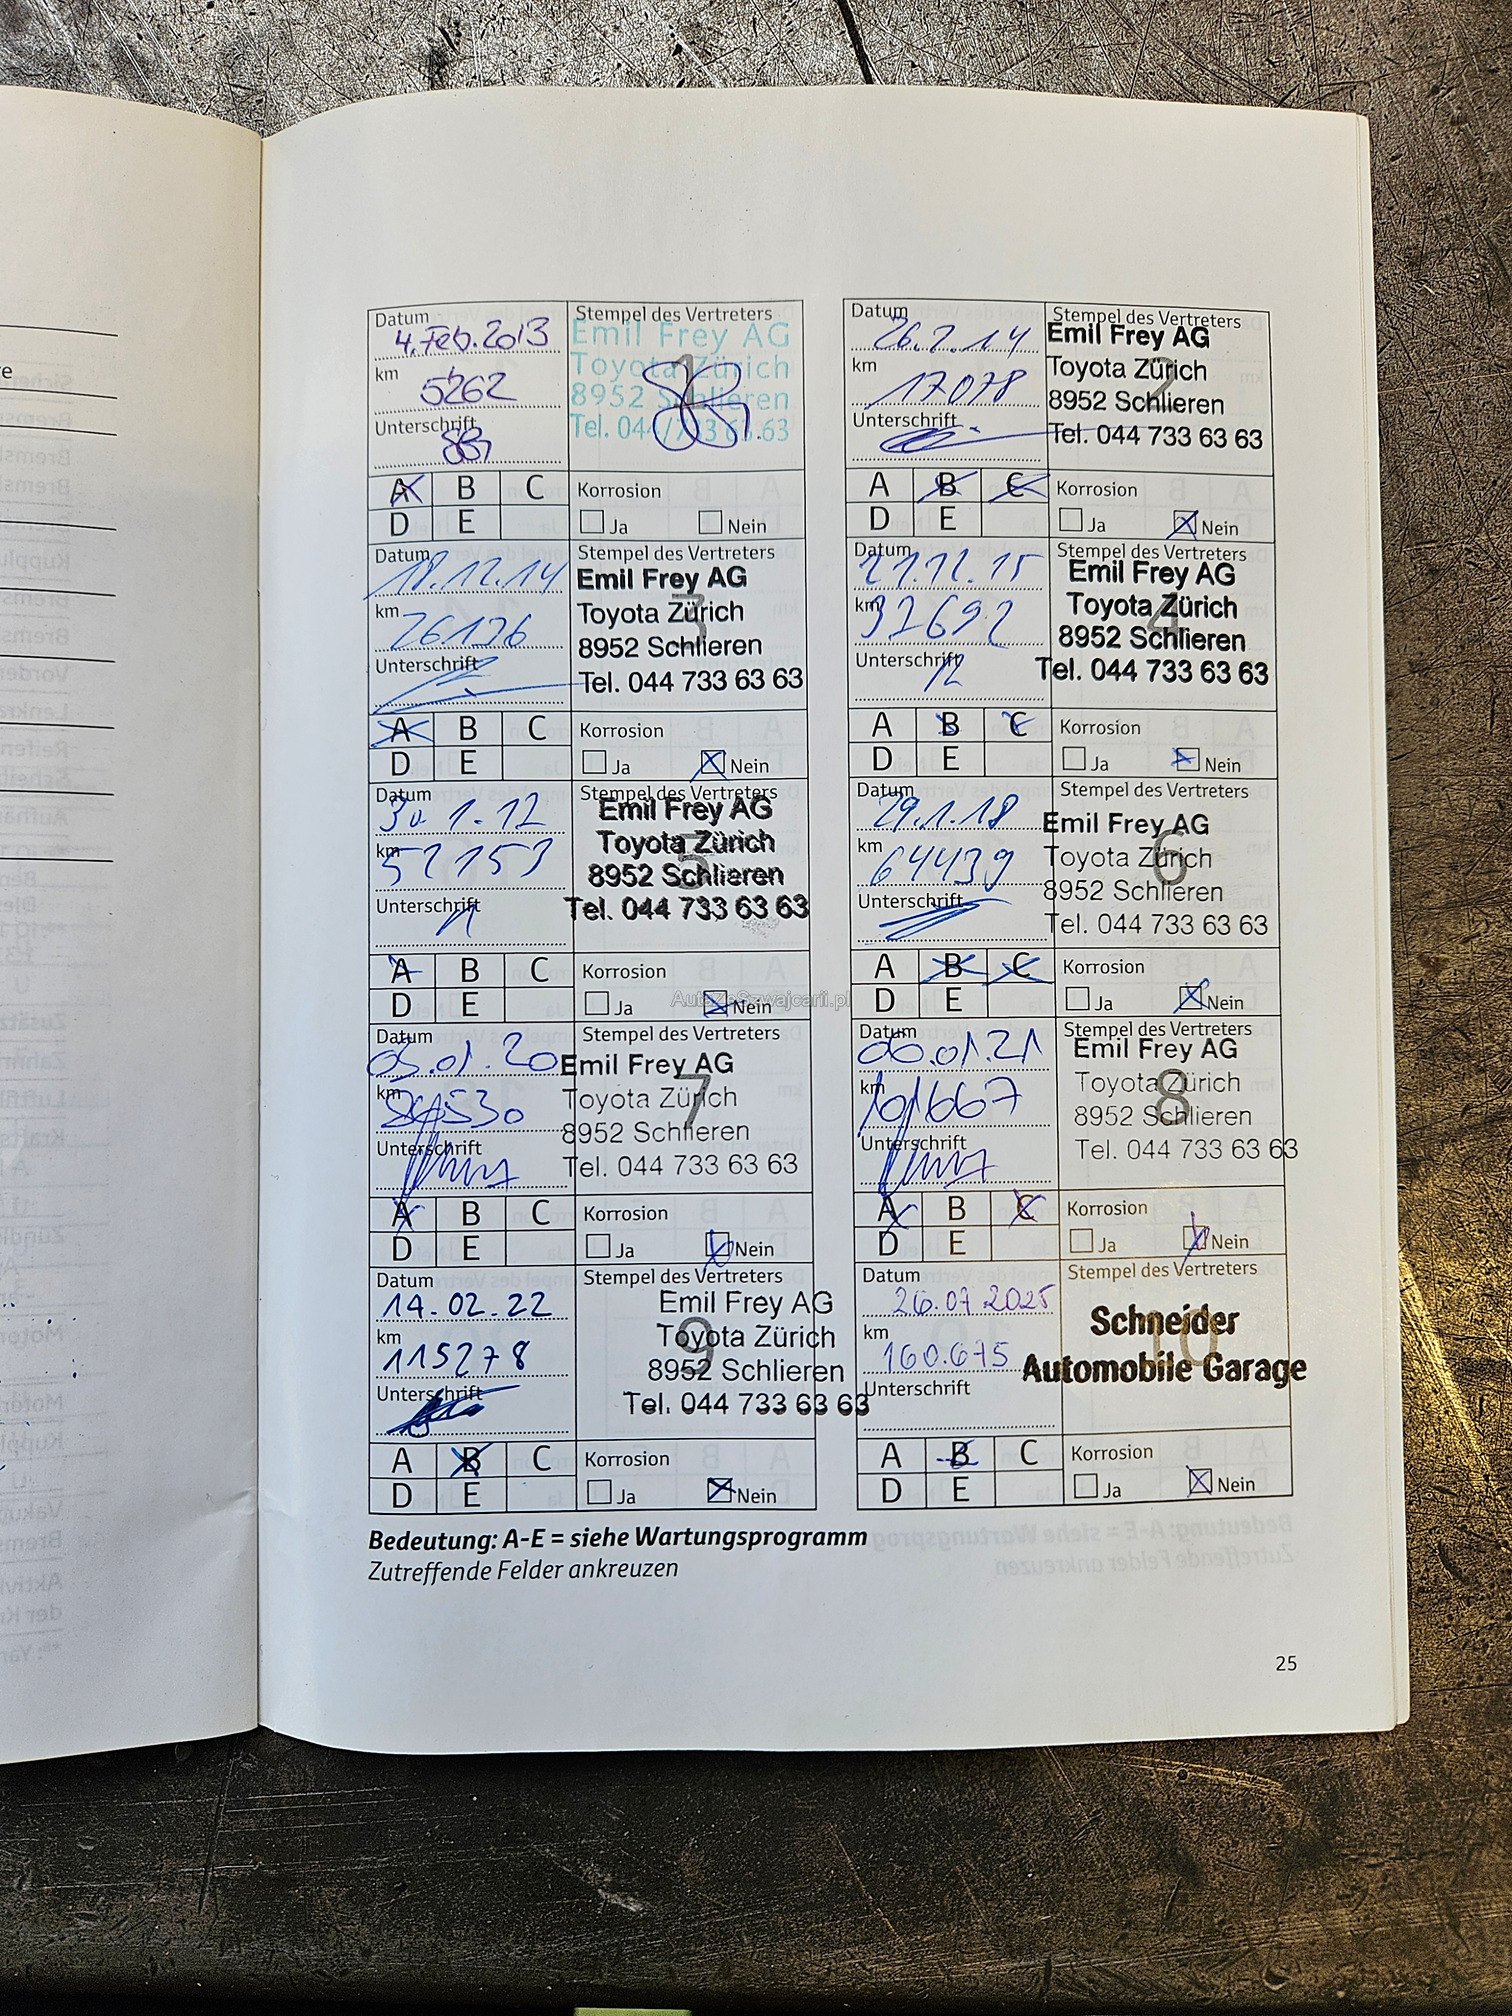 Datum
4. Feb. 2013
km
5262
Unterschrift
Stempel des Vertreters
1
Emil Frey AG
Toyota Zürich
8952 Schlieren
Tel. 044/733 63 63
A B C
D E
Korrosion
Ja Nein
Datum
26.2.14
km
17078
Unterschrift
Stempel des Vertreters
2
Emil Frey AG
Toyota Zürich
8952 Schlieren
Tel. 044 733 63 63
A B C
D E
Korrosion
Ja Nein
Datum
km
26.136
Unterschrift
Stempel des Vertreters
3
Emil Frey AG
Toyota Zürich
8952 Schlieren
Tel. 044 733 63 63
A B C
D E
Korrosion
Ja Nein
Datum
21.12.15
km
Unterschrift
Stempel des Vertreters
4
Emil Frey AG
Toyota Zürich
8952 Schlieren
Tel. 044 733 63 63
A B C
D E
Korrosion
Ja Nein
Datum
km
Unterschrift
Stempel des Vertreters
5
Emil Frey AG
Toyota Zürich
8952 Schlieren
Tel. 044 733 63 63
A B C
D E
Korrosion
Ja Nein
Datum
29.1.18
km
64439
Unterschrift
Stempel des Vertreters
6
Emil Frey AG
Toyota Zürich
8952 Schlieren
Tel. 044 733 63 63
A B C
D E
Korrosion
Ja Nein
Datum
03.01.20
km
Unterschrift
Stempel des Vertreters
7
Emil Frey AG
Toyota Zürich
8952 Schlieren
Tel. 044 733 63 63
A B C
D E
Korrosion
Ja Nein
Datum
06.01.21
km
101667
Unterschrift
Stempel des Vertreters
8
Emil Frey AG
Toyota Zürich
8952 Schlieren
Tel. 044 733 63 63
A B C
D E
Korrosion
Ja Nein
Datum
14.02.22
km
115278
Unterschrift
Stempel des Vertreters
9
Emil Frey AG
Toyota Zürich
8952 Schlieren
Tel. 044 733 63 63
A B C
D E
Korrosion
Ja Nein
Datum
26.07.2025
km
160.675
Unterschrift
Stempel des Vertreters
10
Schneider
Automobile Garage
A B C
D E
Korrosion
Ja Nein
Bedeutung: A-E = siehe Wartungsprogramm
Zutreffende Felder ankreuzen
25
AutaZeSzwajcarii.pl